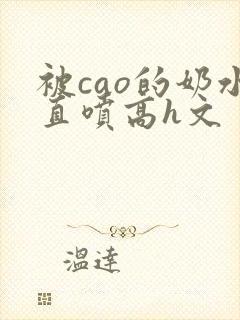 被cao的奶水
直喷高h文
温達